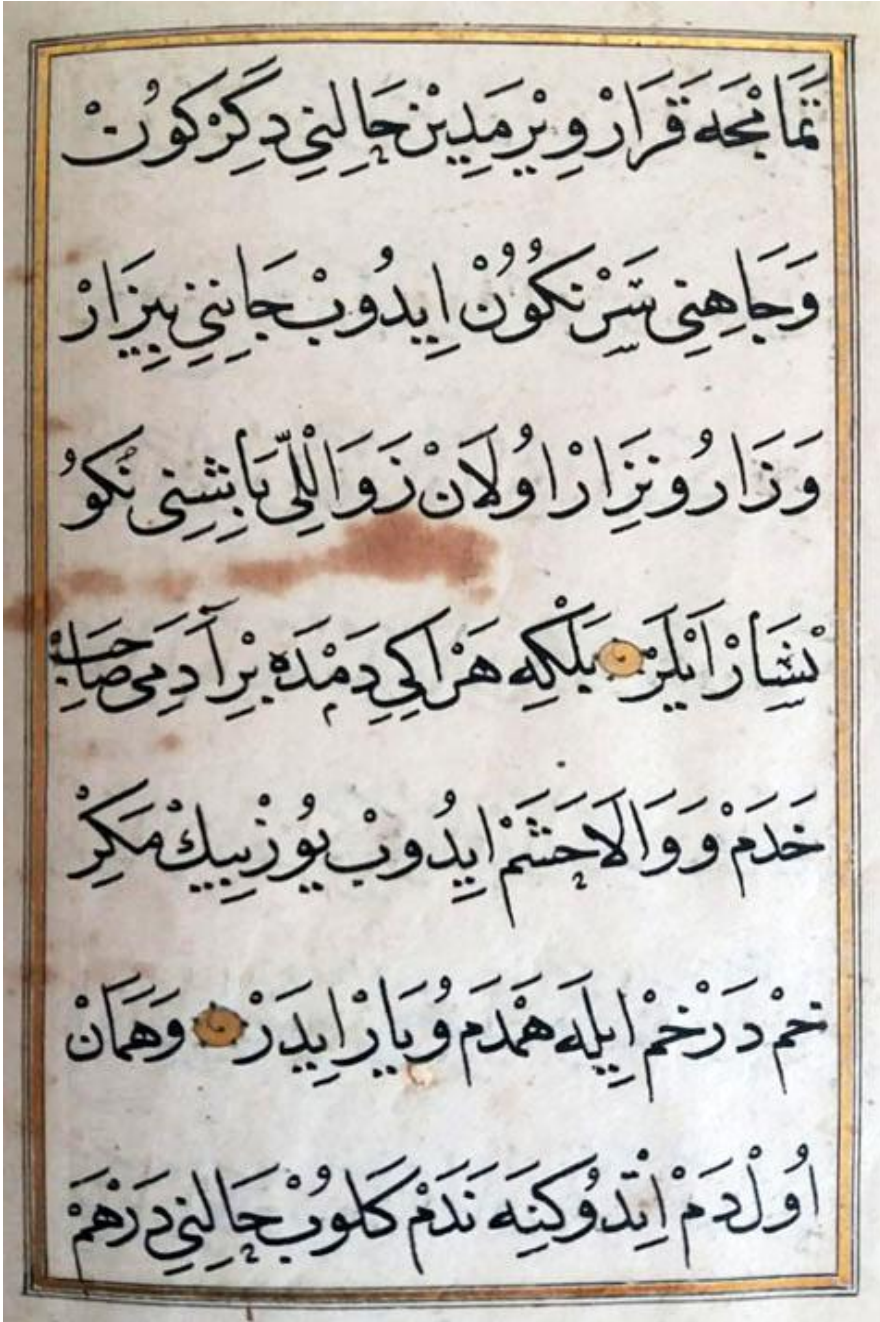 تَمَامْجَه قَرَارْ وِيْرمَدِيْن حَالِنِي دِكَرْكُونْ
وَجَاهِنِي سَرْنكُوُنْ اِيدُوبْ جَانِنِي بِيزَارْ
وَزَارُ ونِزَارْ اوُلَانْ زَوَالْلِّي يَاشِنِي نكوُ
نْسَارْ اَيْلَرْ بَلْكِه هَرْ اكِي دَمْدَه بِرْ آدَمِي صَاحِبْ
خَدَمْ وَوَالَاحَشَمْ ايِدُوبْ يوُزْبِيكْ مَكِرْ
خمْ دَرْخَمْ اِيلَه هَمْدَم وُيَارْ ايِدَرْ وَهَمَانْ
اوُلْ دَمْ اِتّدُوكِنَه نَدَمْ كَلوُبْ حَالِنِي دَرْهَمْ